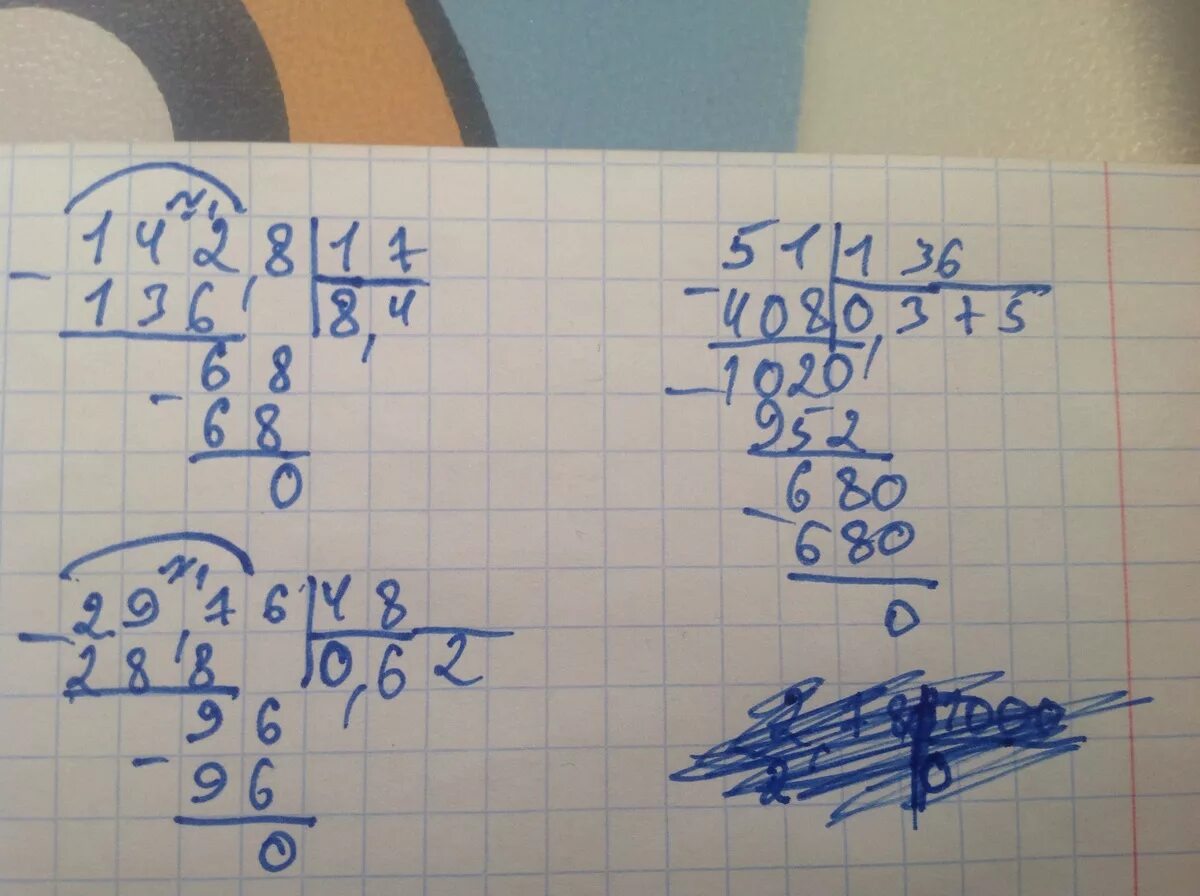 142,8 | 17
- 136 | 8,4
68
- 68
0
29,76 | 48
- 288 | 0,62
96
- 96
0
51 | 136
- 408 | 0,375
- 1020
952
680
- 680
0